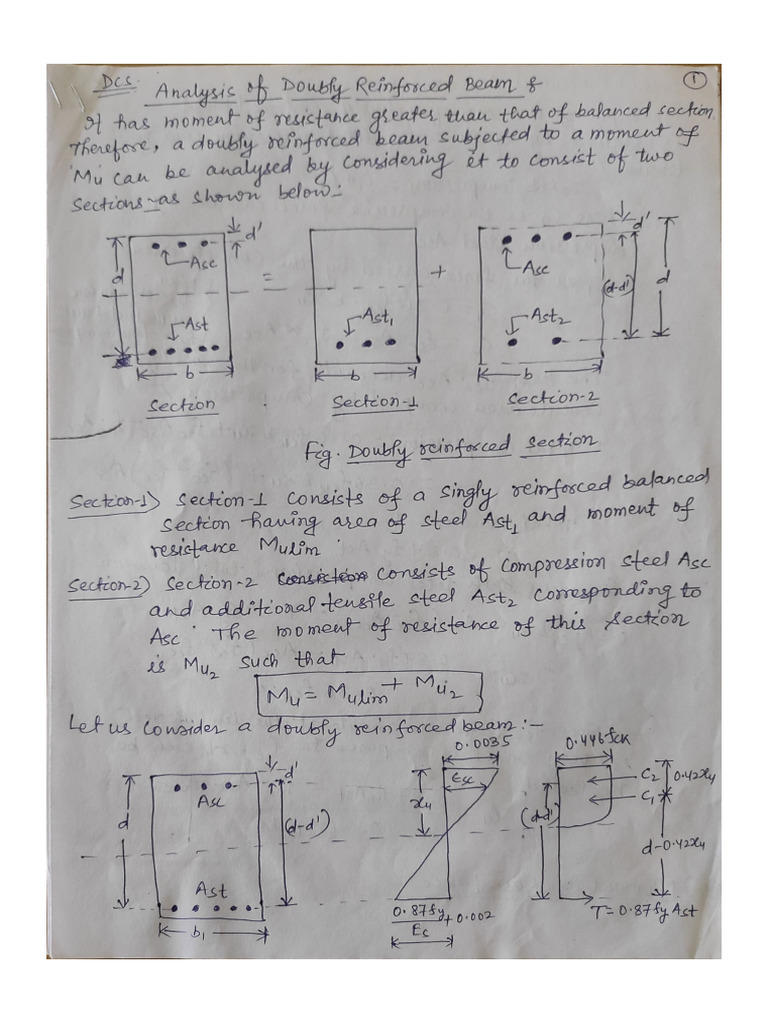 DCS. Analysis of Doubly Reinforced Beam :
1
It has moment of resistance greater than that of balanced section.
Therefore, a doubly reinforced beam subjected to a moment of
Mu can be analysed by considering it to consist of two
sections as shown below:-
d' d'
Asc Asc
d = + (d-d') d
Ast Ast1 Ast2
b b b
Section Section-1 Section-2
Fig. Doubly reinforced section
Section-1) Section-1 consists of a singly reinforced balanced
section having area of steel Ast1 and moment of
resistance Mulim.
Section-2) Section-2 consists of compression steel Asc
and additional tensile steel Ast2 corresponding to
Asc. The moment of resistance of this section
is Mu2 such that
Mu = Mulim + Mu2
Let us consider a doubly reinforced beam:-
0.0035 0.446fck
d' Esc C2 0.42xu
Asc xu C1
d (d-d') (d-d')
d-0.42xu
Ast
0.87fy/Ec + 0.002 T=0.87fy Ast
b1